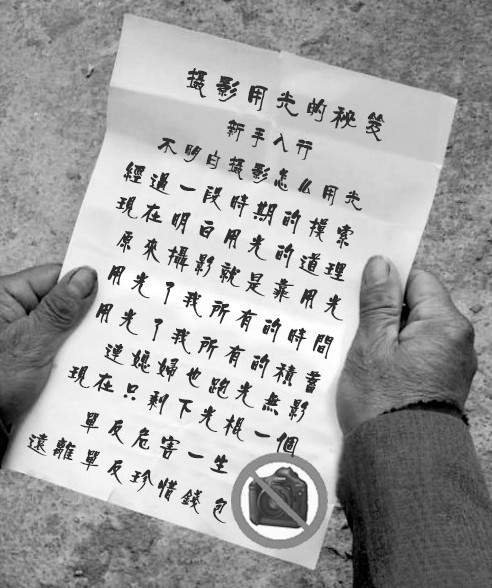 攝影用光的秘笈
新手入行
不明白攝影怎么用光
經過一段時期的摸索
現在明白用光的道理
原來攝影就是靠用光
用光了我所有的時間
用光了我所有的積蓄
連媳婦也跑光無影
現在只剩下光棍一個
單反危害一生
遠離單反珍惜錢包